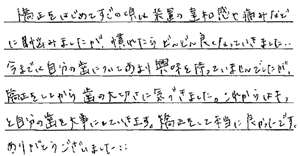 矯正をはじめてすぐの頃は装置の違和感や痛みなど
に悩みましたが、慣れたらどんどん良くなっていきました..
今までは自分の歯についてあまり興味を持っていませんでしたが、
矯正をしてから歯の大切さに気づきました。これからはもっ
と自分の歯を大事にしていきます。矯正をして本当に良かったです。
ありがとうございました..